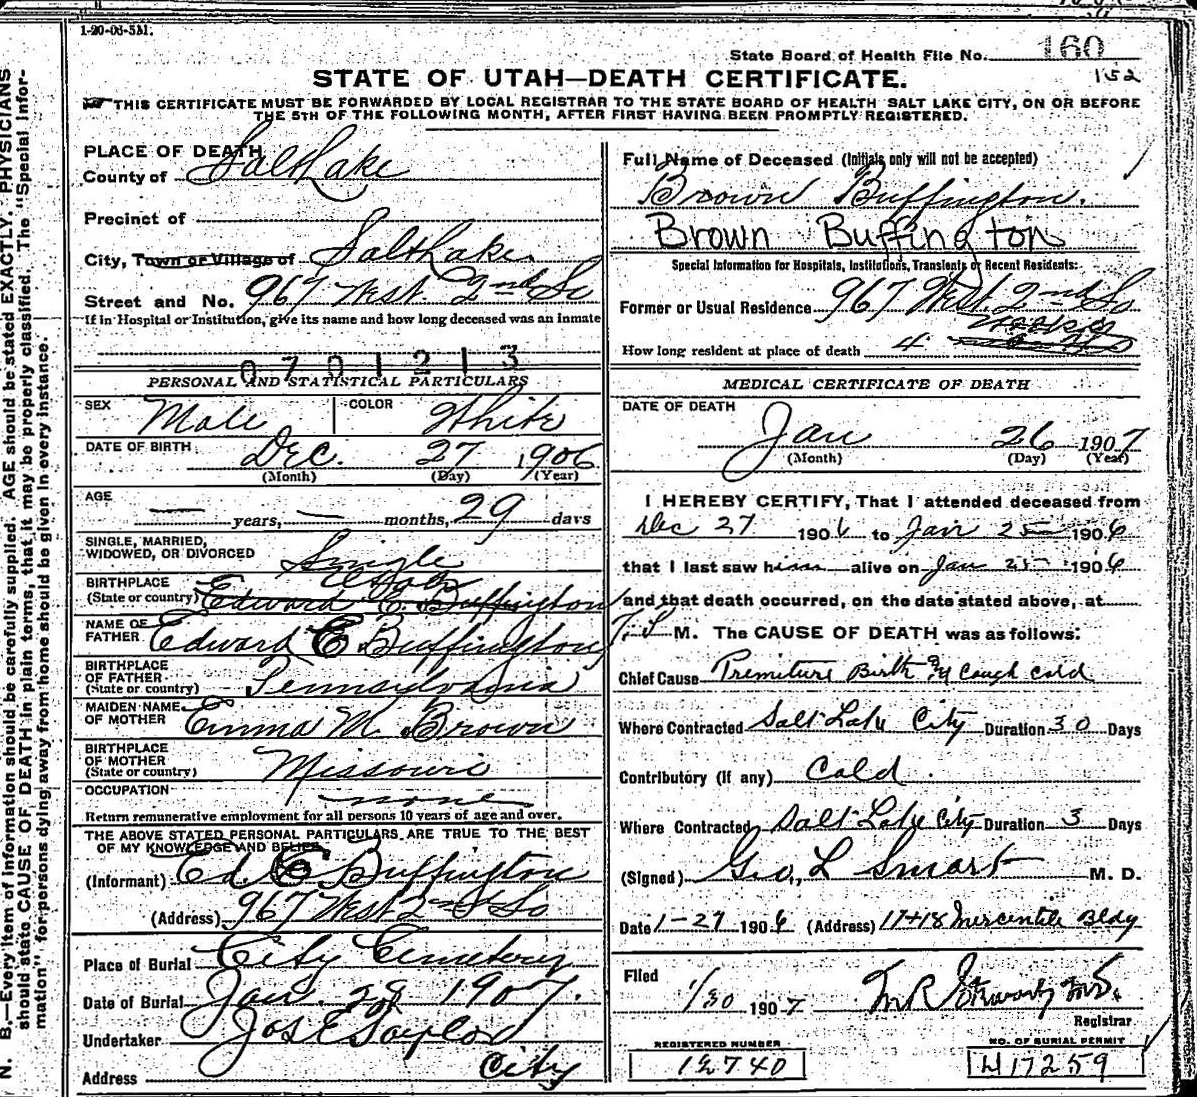 1-20-06-5M.
State Board of Health File No. 160
152
STATE OF UTAH—DEATH CERTIFICATE.
THIS CERTIFICATE MUST BE FORWARDED BY LOCAL REGISTRAR TO THE STATE BOARD OF HEALTH SALT LAKE CITY, ON OR BEFORE
THE 5TH OF THE FOLLOWING MONTH, AFTER FIRST HAVING BEEN PROMPTLY REGISTERED.
N. B.—Every item of information should be carefully supplied. AGE should be stated EXACTLY. PHYSICIANS
should state CAUSE OF DEATH in plain terms, that it may be properly classified. The "Special Infor-
mation" for persons dying away from home should be given in every instance.
PLACE OF DEATH
County of Salt Lake
Precinct of
City, Town or Village of Salt Lake
Street and No. 967 West 2nd So
If in Hospital or Institution, give its name and how long deceased was an inmate
0701213
PERSONAL AND STATISTICAL PARTICULARS
SEX Male COLOR White
DATE OF BIRTH Dec. 27 1906
(Month) (Day) (Year)
AGE
— years, — months, 29 days
SINGLE, MARRIED,
WIDOWED, OR DIVORCED Single
BIRTHPLACE Utah
(State or country) Edward E. Buffington
NAME OF
FATHER Edward E Buffington
BIRTHPLACE
OF FATHER
(State or country) Pennsylvania
MAIDEN NAME
OF MOTHER Emma M. Brown
BIRTHPLACE
OF MOTHER
(State or country) Missouri
OCCUPATION none
Return remunerative employment for all persons 10 years of age and over.
THE ABOVE STATED PERSONAL PARTICULARS ARE TRUE TO THE BEST
OF MY KNOWLEDGE AND BELIEF
(Informant) Ed E Buffington
(Address) 967 West 2nd So
Place of Burial City Cemetery
Date of Burial Jan. 28 1907.
Undertaker Jos E Taylor
Address City
Full Name of Deceased (Initials only will not be accepted)
Brown Buffington.
Brown Buffington
Special Information for Hospitals, Institutions, Transients or Recent Residents:
Former or Usual Residence 967 West 2nd So
weeks
How long resident at place of death 4
MEDICAL CERTIFICATE OF DEATH
DATE OF DEATH
Jan 26 1907
(Month) (Day) (Year)
I HEREBY CERTIFY, That I attended deceased from
Dec 27 1906 to Jan 25 1906
that I last saw him alive on Jan 25 1906
and that death occurred, on the date stated above, at
M. The CAUSE OF DEATH was as follows:
Chief Cause Premiture Birth Cough cold
Where Contracted Salt Lake City Duration 30 Days
Contributory (if any) Cold.
Where Contracted Salt Lake City Duration 3 Days
(Signed) Geo. L Smart M. D.
Date 1-27 1906 (Address) 17+18 Mercantile Bldg
Filed
1/30 1907 M R Stewart M.D.
Registrar
REGISTERED NUMBER
12740
NO. OF BURIAL PERMIT
H17259